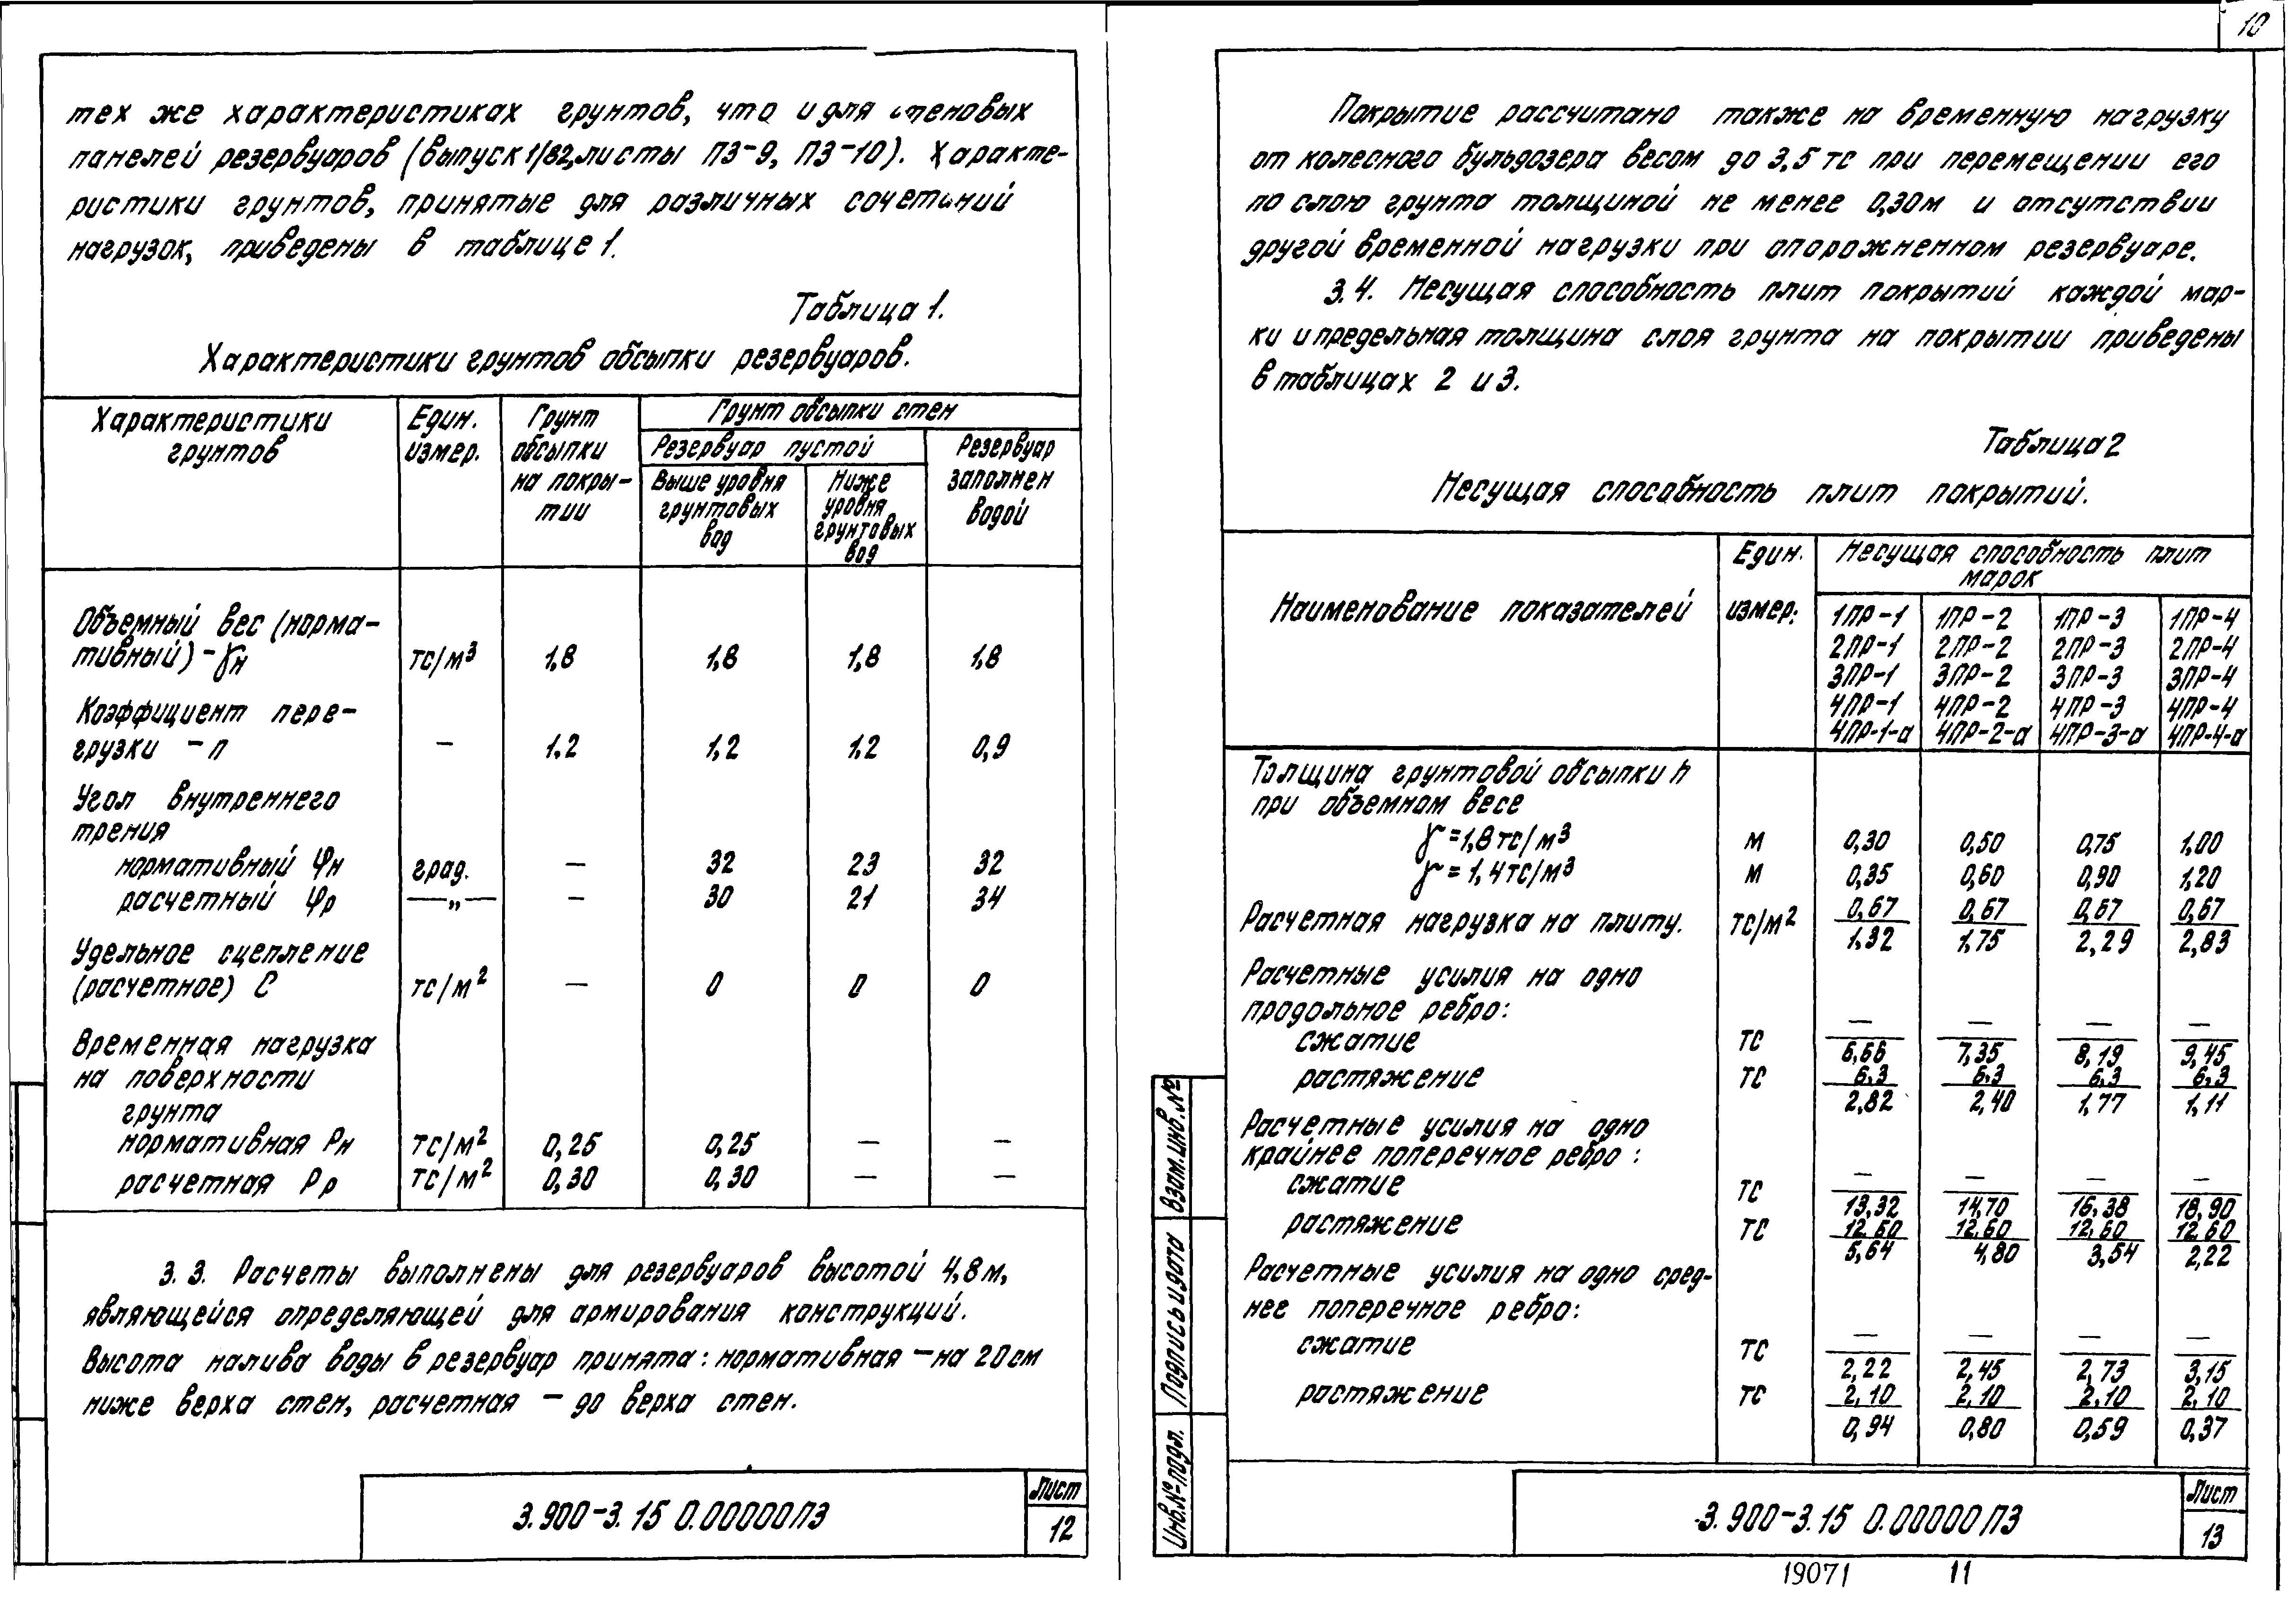 10
тех же характеристиках грунтов, что и для стеновых
панелей резервуаров (выпуск 1/82, листы ПЗ-9, ПЗ-10). Характе-
ристики грунтов, принятые для различных сочетаний
нагрузок, приведены в таблице 1.
Таблица 1.
Характеристики грунтов обсыпки резервуаров.
Характеристики грунтов | Един. измер. | Грунт обсыпки на покры-тии | Грунт обсыпки стен
Резервуар пустой | Резервуар заполнен водой
Выше уровня грунтовых вод | Ниже уровня грунтовых вод
Объемный вес (норма-
тивный) - γн тс/м³ 1,8 1,8 1,8 1,8
Коэффициент пере-
грузки - п — 1.2 1,2 1,2 0,9
Угол внутреннего
трения
нормативный φн град. — 32 23 32
расчетный φр —„— — 30 21 34
Удельное сцепление
(расчетное) С тс/м² — 0 0 0
Временная нагрузка
на поверхности
грунта
нормативная Рн тс/м² 0,25 0,25 — —
расчетная Рр тс/м² 0,30 0,30 — —
3.3. Расчеты выполнены для резервуаров высотой 4,8 м,
являющейся определяющей для армирования конструкций.
Высота налива воды в резервуар принята: нормативная — на 20 см
ниже верха стен, расчетная — до верха стен.
3.900-3.15 0.00000ПЗ
Лист
12
Покрытие рассчитано также на временную нагрузку
от колесного бульдозера весом до 3,5 тс при перемещении его
по слою грунта толщиной не менее 0,30 м и отсутствии
другой временной нагрузки при опорожненном резервуаре.
3.4. Несущая способность плит покрытий каждой мар-
ки и предельная толщина слоя грунта на покрытии приведены
в таблицах 2 и 3.
Таблица 2
Несущая способность плит покрытий.
Наименование показателей | Един. измер. | Несущая способность плит марок
1ПР-1 1ПР-2 1ПР-3 1ПР-4
2ПР-1 2ПР-2 2ПР-3 2ПР-4
3ПР-1 3ПР-2 3ПР-3 3ПР-4
4ПР-1 4ПР-2 4ПР-3 4ПР-4
4ПР-1-а 4ПР-2-а 4ПР-3-а 4ПР-4-а
Толщина грунтовой обсыпки h
при объемном весе
γ=1,8 тс/м³ м 0,30 0,50 0,75 1,00
γ=1,4 тс/м³ м 0,35 0,60 0,90 1,20
Расчетная нагрузка на плиту. тс/м² 0,67 0,67 0,67 0,67
1,32 1,75 2,29 2,83
Расчетные усилия на одно
продольное ребро:
сжатие тс — — — —
6,66 7,35 8,19 9,45
растяжение тс 6,3 6,3 6,3 6,3
2,82 2,40 1,77 1,11
Расчетные усилия на одно
крайнее поперечное ребро:
сжатие тс — — — —
13,32 14,70 16,38 18,90
растяжение тс 12,60 12,60 12,60 12,60
5,64 4,80 3,54 2,22
Расчетные усилия на одно сред-
нее поперечное ребро:
сжатие тс — — — —
2,22 2,45 2,73 3,15
растяжение тс 2,10 2,10 2,10 2,10
0,94 0,80 0,59 0,37
Взам.инв.№
Подпись и дата
Инв.№ подл.
3.900-3.15 0.00000ПЗ
Лист
13
19071 11